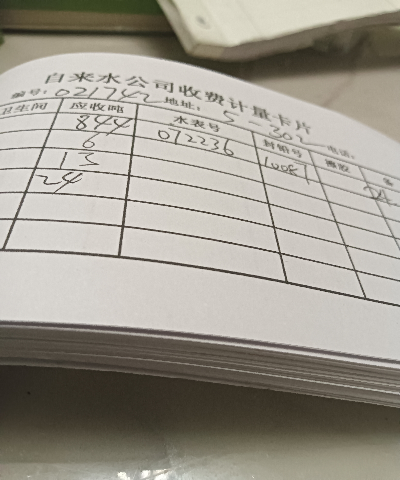 自来水公司收费计量卡片
编号: 021742 地址: 5-302 电话:
卫生间 应收吨 水表号 封铅号
844 012236
6
13
24